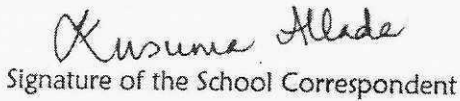 Kusuma Allade
Signature of the School Correspondent